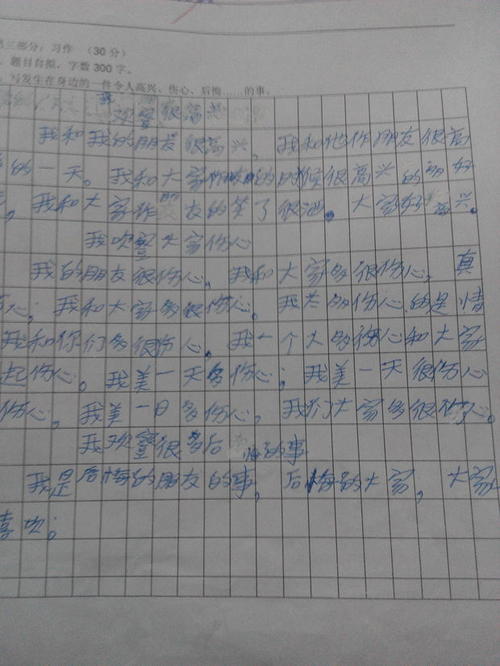 第三部分：习作 （30分）
题目自拟，字数300字。
写发生在身边的一件令人高兴、伤心、后悔……的事。
我欢喜很高兴
我和我的朋友很高兴，我和他作朋友很高
的一天。我和大家作的时候很高兴的朋好
，我和大家作朋友的笑了很。大家好高兴。
我欢喜大家伤心
我的朋友很伤心，我和大家多很伤心，真
心；我和大家多很伤心。我为多伤心的是情
我和你们多很伤心。我一个大多伤心和大家
起伤心。我美一天多伤心；我美一天很伤心
伤心，我美一日多伤心，我们大家多很伤心。
我欢喜很多后悔的事
我是后悔的朋友的事，后悔的大家，大家
喜欢。